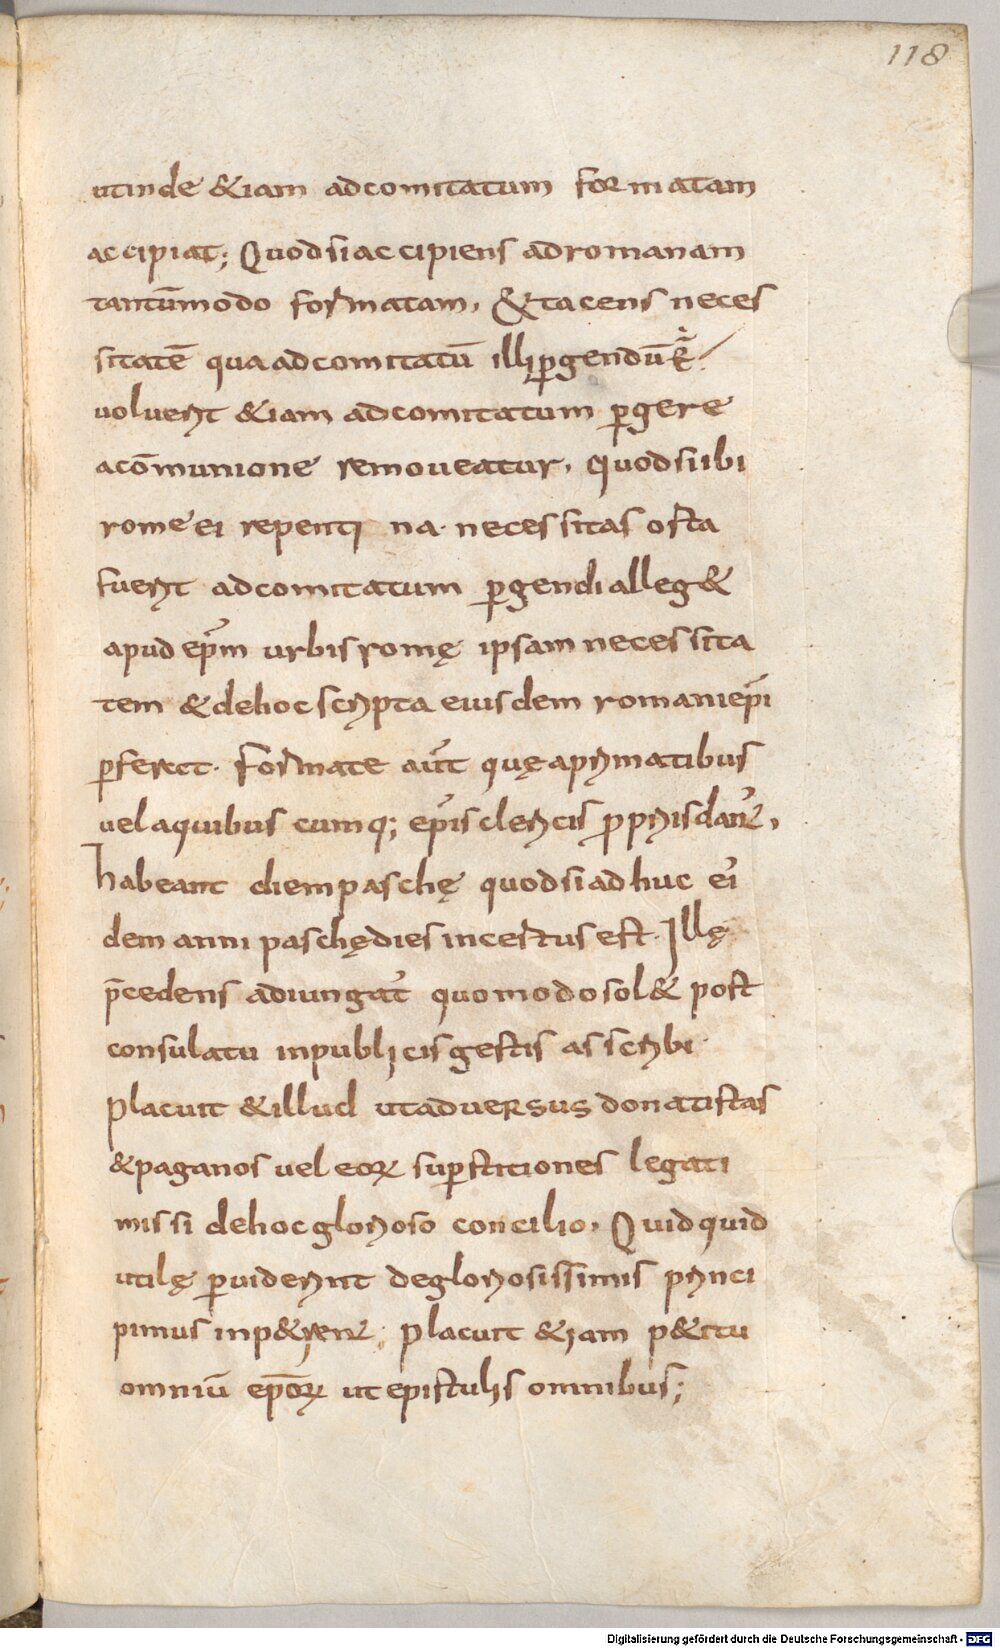 118
utinde &iam adcomitatum formatam
accipiat; Quodsiaccipiens adromanam
tantūmodo formatam, &tacens neces
sitatē quaadcomitatū illi ꝑgendū ē
uoluerit &iam adcomitatum ꝑgere
acōmunione remoueatur, quodsiibi
rome ei repenti na· necessitas osta
fuerit adcomitatum ꝑgendi alleg&
apud ep̄m urbis romę ipsam necessita
tem &dehoc scripta eiusdem romaniep̄i
ꝑferet· formate aut̄ quę aprimatibus
uel aquibus cumq; ep̄is clericis ꝓpriis dant᷑,
habeant diem paschę quodsiadhuc ei
dem anni paschędies incertus est· Illę
p̄cedens adiungat᷑ quomodo sol& post
consulatu inpublicis gestis asscribi·
placuit &illud utaduersus donatistas
&paganos uel eoꝝ suꝑstitiones legati
missi dehoc glorioso concilio, Quidquid
utilę ꝑuiderint degloriosissimis princi
pimus inp&rent᷑; placuit &iam p&itu
omniū ep̄oꝝ ut epistulis omnibus;
Digitalisierung gefördert durch die Deutsche Forschungsgemeinschaft - DFG